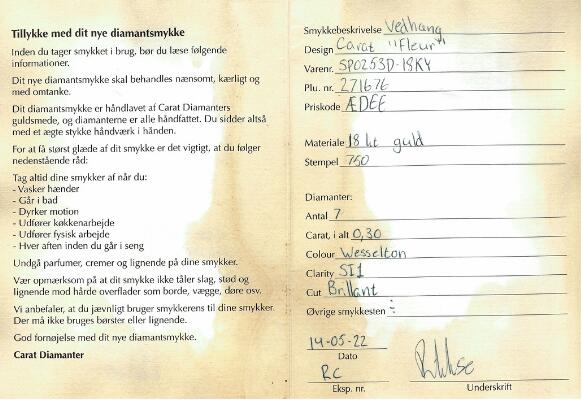 Tillykke med dit nye diamantsmykke
Inden du tager smykket i brug, bør du læse følgende
informationer.
Dit nye diamantsmykke skal behandles nænsomt, kærligt og
med omtanke.
Dit diamantsmykke er håndlavet af Carat Diamanters
guldsmede, og diamanterne er alle håndfattet. Du sidder altså
med et ægte stykke håndværk i hånden.
For at få størst glæde af dit smykke er det vigtigt, at du følger
nedenstående råd:
Tag altid dine smykker af når du:
- Vasker hænder
- Går i bad
- Dyrker motion
- Udfører køkkenarbejde
- Udfører fysisk arbejde
- Hver aften inden du går i seng
Undgå parfumer, cremer og lignende på dine smykker.
Vær opmærksom på at dit smykke ikke tåler slag, stød og
lignende mod hårde overflader som borde, vægge, døre osv.
Vi anbefaler, at du jævnligt bruger smykkerens til dine smykker.
Der må ikke bruges børster eller lignende.
God fornøjelse med dit nye diamantsmykke.
Carat Diamanter
Smykkebeskrivelse Vedhang
Design Carat "Fleur"
Varenr. SP0253D-18KY
Plu. nr. 271676
Priskode ÆDEE
Materiale 18 kt guld
Stempel 750
Diamanter:
Antal 7
Carat, i alt 0,30
Colour Wesselton
Clarity SI1
Cut Brillant
Øvrige smykkesten ÷
14-05-22
Dato
RC
Eksp. nr.
Underskrift